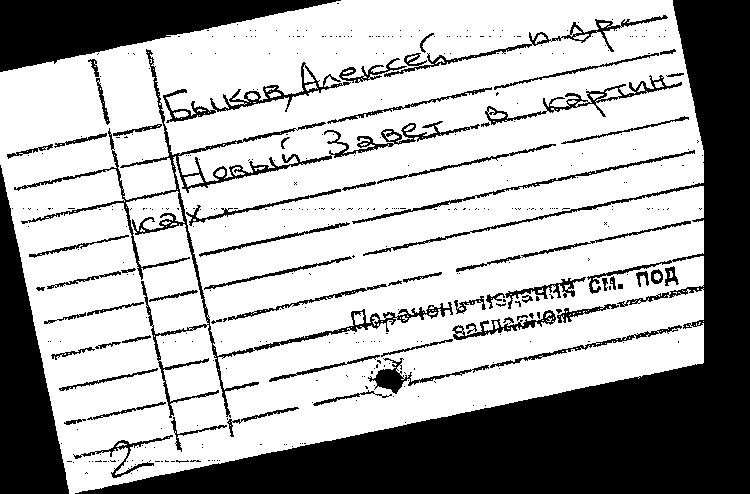 Быков, Алексей и др.
Новый Завет в картин-
ках.
Перечень изданий см. под
заглавием
2